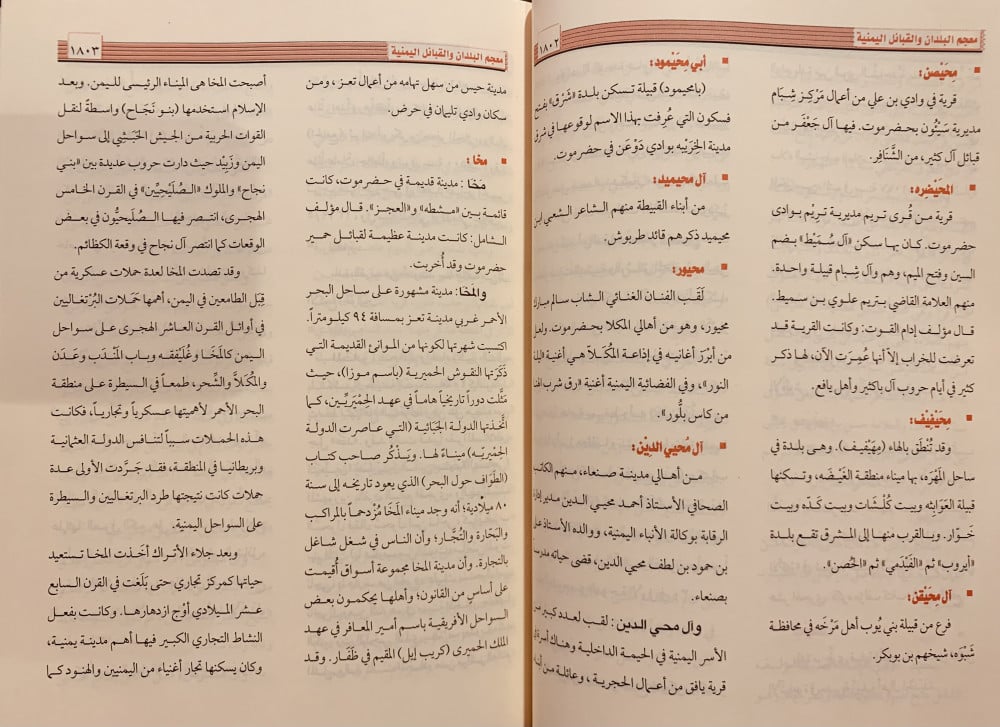 معجم البلدان والقبائل اليمنية
١٨٠٢
محَيْصن:
قرية في وادي بن علي من أعمال مَرْكز شِبَام
مديرية سَيْئون بحضرموت. فيها آل جَعْفَر من
قبائل آل كثير، من الشَّنَافِر.
المحَيْضره:
قرية من قُرى تريم مديرية تريْم بوادى
حضرموت. كان بها سكن «آل سُمَيْط» بضم
السين وفتح الميم، وهم وآل شِبام قبيلة واحدة.
منهم العلامة القاضي بتريم علوي بن سميط.
قال مؤلف إدام القوت: وكانت القرية قد
تعرضت للخراب إلاّ أنها عُمِرَت الآن، لها ذكر
كثير في أيام حروب آل باكثير وأهل يافع.
محَيْفِيْف:
وقد تُنْطَق بالهاء (مِهَيْفِيف). وهى بلدة في
ساحل المَهْرَه، بها ميناء منطقة الغَيْضَه، وتسكنها
قبيلة العَوَابِثه وبيت كُلْشَات وبيت كدّه وبيت
خَوّار. وبالقرب منها إلى المشرق تقع بلدة
«أيروب» ثم «الفَيْدَمي» ثم «الحُصن».
آل محَيْقن:
فرع من قبيلة بني يُوب أهل مَرْخَه في محافظة
شَبْوَه، شيخهم بن بوبكر.
أبي محَيْمود:
(بامحيمود) قبيلة تسكن بلدة «شَرْق» بفتح
فسكون التي عُرِفت بهذا الاسم لوقوعها في شرق
مدينة الخُرَيْبه بوادي دَوْعَن في حضرموت.
آل محيميد:
من أبناء القبيطة منهم الشاعر الشعبي ابن
محيميد ذكرهم قائد طربوش.
محيور:
لَقَب الفنان الغنائي الشاب سالم مبارك
محيور، وهو من أهالي المكلا بحضرموت. ولعل
من أبْرَز أغانيه في إذاعة المُكَلاَ هي أغنية «ليلة
النور»، وفي الفضائية اليمنية أغنية «رق شرب الهنا
من كاس بلُّور».
آل مُحيي الدِيْن:
من أهالي مدينة صنعاء، منهم الكاتب
الصحافي الأستاذ أحمد محيي الدين مدير إدارة
الرقابة بوكالة الأنباء اليمنية، ووالده الأستاذ علي
بن حمود بن لطف محيي الدين، قضى حياته مدرساً
بصنعاء.
وآل محي الدين: لقب لعدد كبير من
الأسر اليمنية في الحيمة الداخلية وهناك أسرة في
قرية يافق من أعمال الحجرية، وعائلة من أبناء
معجم البلدان والقبائل اليمنية
١٨٠٣
مدينة حيس من سهل تهامه من أعمال تعز، ومن
سكان وادي تليمان في حرض.
مخا:
مَخَا: مدينة قديمة في حضرموت، كانت
قائمة بين «مشطه» و«العجز». قال مؤلف
الشامل: كانت مدينة عظيمة لقبائل حمير
حضرموت وقد أُخربت.
والمخَا: مدينة مشهورة على ساحل البحر
الأحمر غربي مدينة تعز بمسافة ٩٤ كيلومتراً.
اكتسبت شهرتها لكونها من الموانئ القديمة التي
ذَكَرَتها النقوش الحميرية (باسم موزا)، حيث
مَثَّلت دوراً تاريخياً هاماً في عهد الحِمْيَريّين، كما
أتَّخذتها الدولة الحَبَاثية (التي عاصرت الدولة
الحِمْيريَه) ميناءً لها. ويَذْكُر صاحب كتاب
(الطَواف حول البحر) الذي يعود تاريخه إلى سنة
٨٠ ميلادية؛ أنه وجد ميناء المَخَا مُزْدحماً بالمراكب
والبَحّارة والتُجَّار؛ وأن الناس في شغل شاغل
بالتجارة. وأن مدينة المخا مجموعة أسواق أُقيمت
على أساسٍ من القانون؛ وأهلها يحكمون بعض
السواحل الأفريقية باسم أمير المعافر في عهد
الملك الحميري (كريب إيل) المقيم في ظَفَار. وقد
أصبحت المخا هى الميناء الرئيسى لليمن. وبعد
الإسلام استخدمها (بنو نَجَاح) واسطةً لنقل
القوات الحربية من الجيش الحَبَشِي إلى سواحل
اليمن وزَبِيْد حيث دارت حروب عديدة بين «بني
نجاح» والملوك «الصُلَيْحِيِّين» في القرن الخامس
الهجرى، انتصر فيها الصُلَيحيُّون في بعض
الوقعات كما انتصر آل نجاح في وقعة الكظائم.
وقد تصدت المخا لعدة حملات عسكرية من
قِبَل الطامعين في اليمن، أهمها حَمَلات البُرْتغاليين
في أوائل القرن العاشر الهجرى على سواحل
اليمن كالمَخَا وغُلَيْفِقَه وباب المَنْدَب وعَدَن
والمُكَلاَّ والشِّحر، طمعاً في السيطرة على منطقة
البحر الأحمر لأهميتها عسكرياً وتجارياً، فكانت
هذه الحملات سبباً لتنافس الدولة العثمانية
وبريطانيا في المنطقة، فقد جَرَّدت الأولى عدة
حملات كانت نتيجتها طرد البرتغاليين والسيطرة
على السواحل اليمنية.
وبعد جلاء الأتراك أَخَذت المخا تستعيد
حياتها كمركز تجاري حتى بَلَغت في القرن السابع
عشر الميلادي أَوْج ازدهارها. وكانت بفعل
النشاط التجاري الكبير فيها أهم مدينة يمنية،
وكان يسكنها تجار أغنياء من اليمنيين والهنود كما